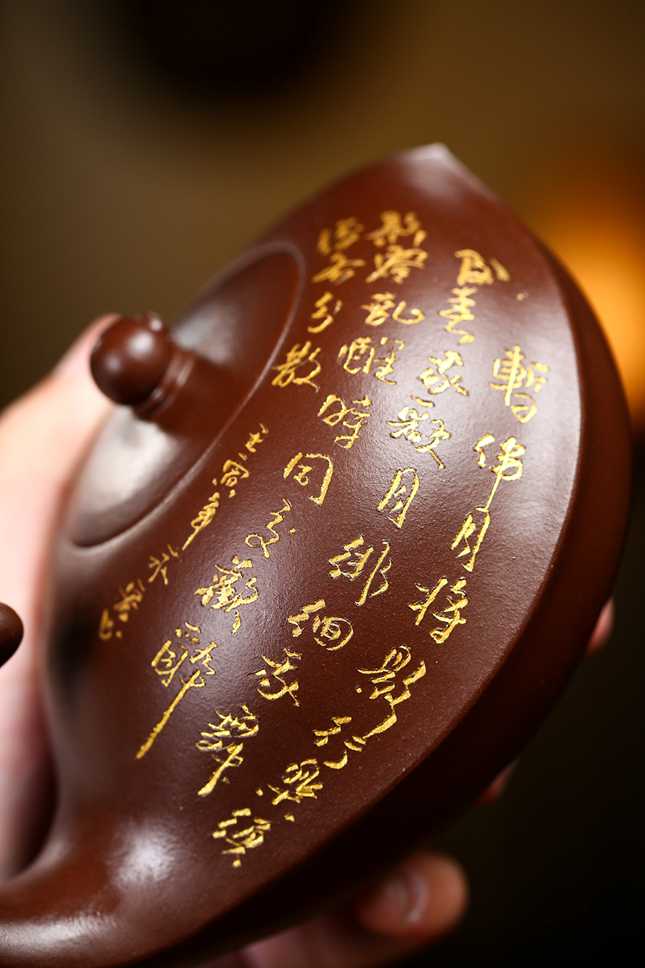 暫伴月將影行樂須
及春我歌月徘徊我舞
影零亂醒時同交歡醉
後各分散
壬寅年